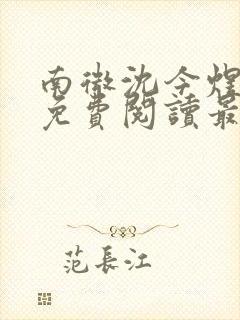 南微沈今煌
免費閱讀最
范長江